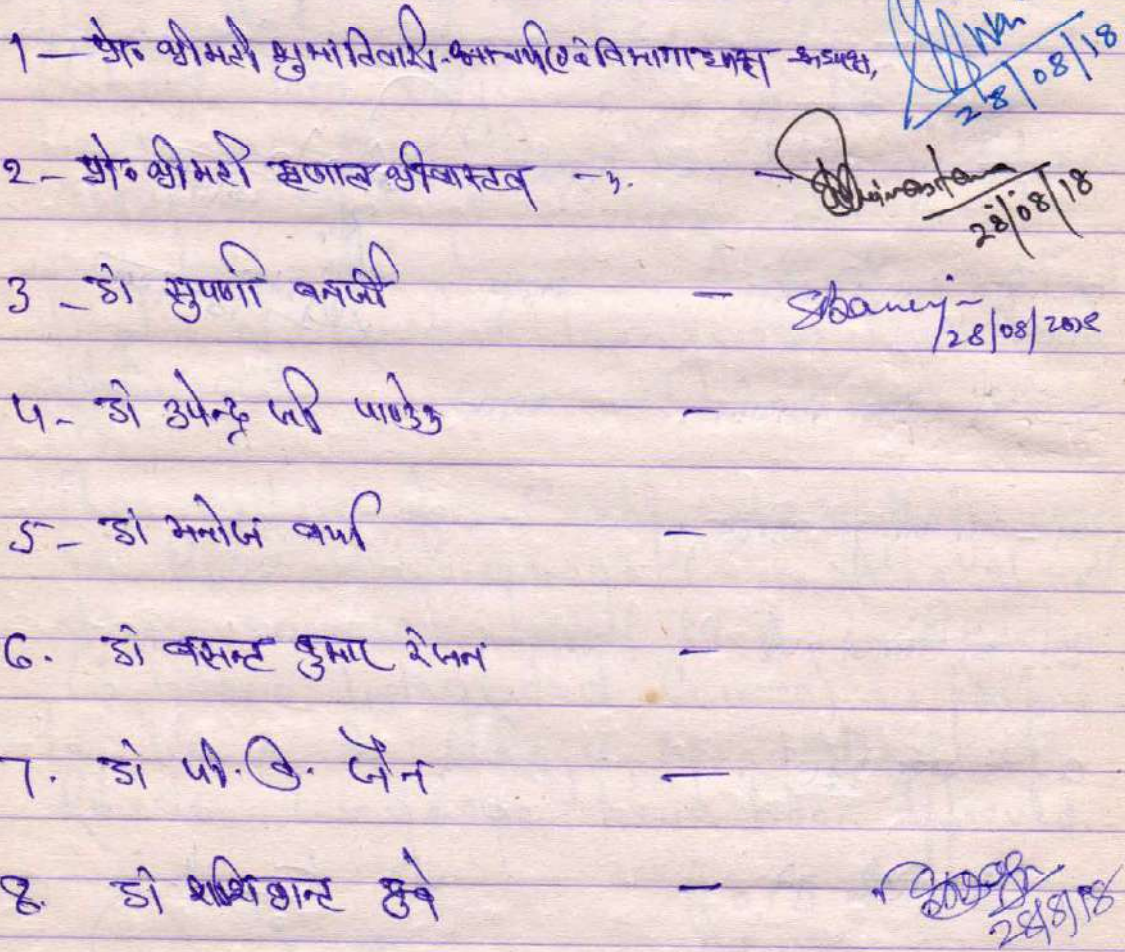 1 - प्रो० श्रीमती सुमां तिवारी. आचार्य एवं विभागाध्यक्ष अध्यक्ष, 28/08/18
2 - प्रो० श्रीमती मृणाल श्रीवास्तव - Shrivastava 28/08/18
3 - डॉ सुपर्णा बनर्जी - SBanerj 28/08/2018
4 - डॉ उपेन्द्र जी पाण्डेय -
5 - डॉ मनोज वर्मा -
6. डॉ बसन्त कुमार -
7. डॉ पी. सी. जैन -
8. डॉ शशिकान्त दुबे - 28/8/18